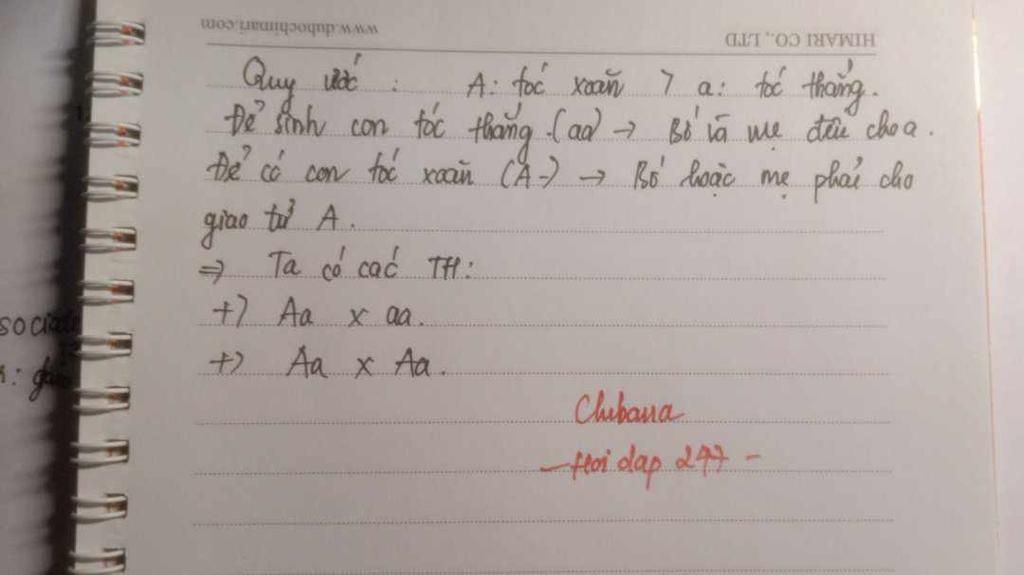 www.duhochimari.com HIMARI CO., LTD
Quy ước : A: tóc xoăn > a: tóc thẳng.
Để sinh con tóc thẳng (aa) → Bố và mẹ đều cho a.
Để có con tóc xoăn (A-) → Bố hoặc mẹ phải cho
giao tử A.
⇒ Ta có các TH:
+) Aa x aa.
+) Aa x Aa.
- hoi dap 247 -